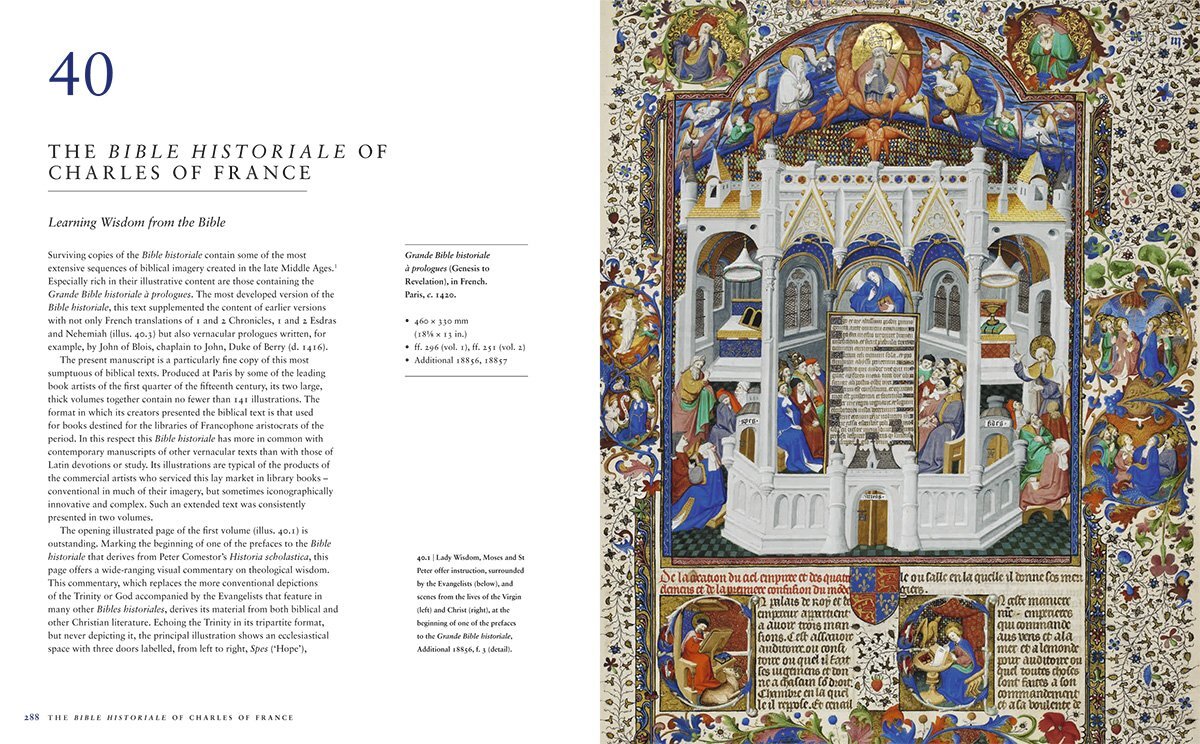 40
THE BIBLE HISTORIALE OF
CHARLES OF FRANCE
Learning Wisdom from the Bible
Surviving copies of the Bible historiale contain some of the most
extensive sequences of biblical imagery created in the late Middle Ages.¹
Especially rich in their illustrative content are those containing the
Grande Bible historiale à prologues. The most developed version of the
Bible historiale, this text supplemented the content of earlier versions
with not only French translations of 1 and 2 Chronicles, 1 and 2 Esdras
and Nehemiah (illus. 40.3) but also vernacular prologues written, for
example, by John of Blois, chaplain to John, Duke of Berry (d. 1416).
The present manuscript is a particularly fine copy of this most
sumptuous of biblical texts. Produced at Paris by some of the leading
book artists of the first quarter of the fifteenth century, its two large,
thick volumes together contain no fewer than 141 illustrations. The
format in which its creators presented the biblical text is that used
for books destined for the libraries of Francophone aristocrats of the
period. In this respect this Bible historiale has more in common with
contemporary manuscripts of other vernacular texts than with those of
Latin devotions or study. Its illustrations are typical of the products of
the commercial artists who serviced this lay market in library books –
conventional in much of their imagery, but sometimes iconographically
innovative and complex. Such an extended text was consistently
presented in two volumes.
The opening illustrated page of the first volume (illus. 40.1) is
outstanding. Marking the beginning of one of the prefaces to the Bible
historiale that derives from Peter Comestor's Historia scholastica, this
page offers a wide-ranging visual commentary on theological wisdom.
This commentary, which replaces the more conventional depictions
of the Trinity or God accompanied by the Evangelists that feature in
many other Bibles historiales, derives its material from both biblical and
other Christian literature. Echoing the Trinity in its tripartite format,
but never depicting it, the principal illustration shows an ecclesiastical
space with three doors labelled, from left to right, Spes ('Hope'),
Grande Bible historiale
à prologues (Genesis to
Revelation), in French.
Paris, c. 1420.
• 460 × 330 mm
(18⅛ × 13 in.)
• ff. 296 (vol. 1), ff. 251 (vol. 2)
• Additional 18856, 18857
40.1 | Lady Wisdom, Moses and St
Peter offer instruction, surrounded
by the Evangelists (below), and
scenes from the lives of the Virgin
(left) and Christ (right), at the
beginning of one of the prefaces
to the Grande Bible historiale,
Additional 18856, f. 3 (detail).
288 THE BIBLE HISTORIALE OF CHARLES OF FRANCE
spes
fides
De la creation du ciel empire et des quatre
elemens et de la premiere confusion du monde
N palais de roy et de
empereur apartient
a avoir trois man
sions. C'est assavoir
auditoire ou consi
toire ou quel il fait
ses jugemens et don
ne a chascun so droit
Chambre en la quel
le il repose. Et cenail
le ou salle en la quelle il donne ses men
giers.
N ceste maniere
empereurs
qui commande
aus vens et a la
mer et a le monde
pour auditoire ou
quel toutes choses
sont faites a son
commandement
et a sa voulente de